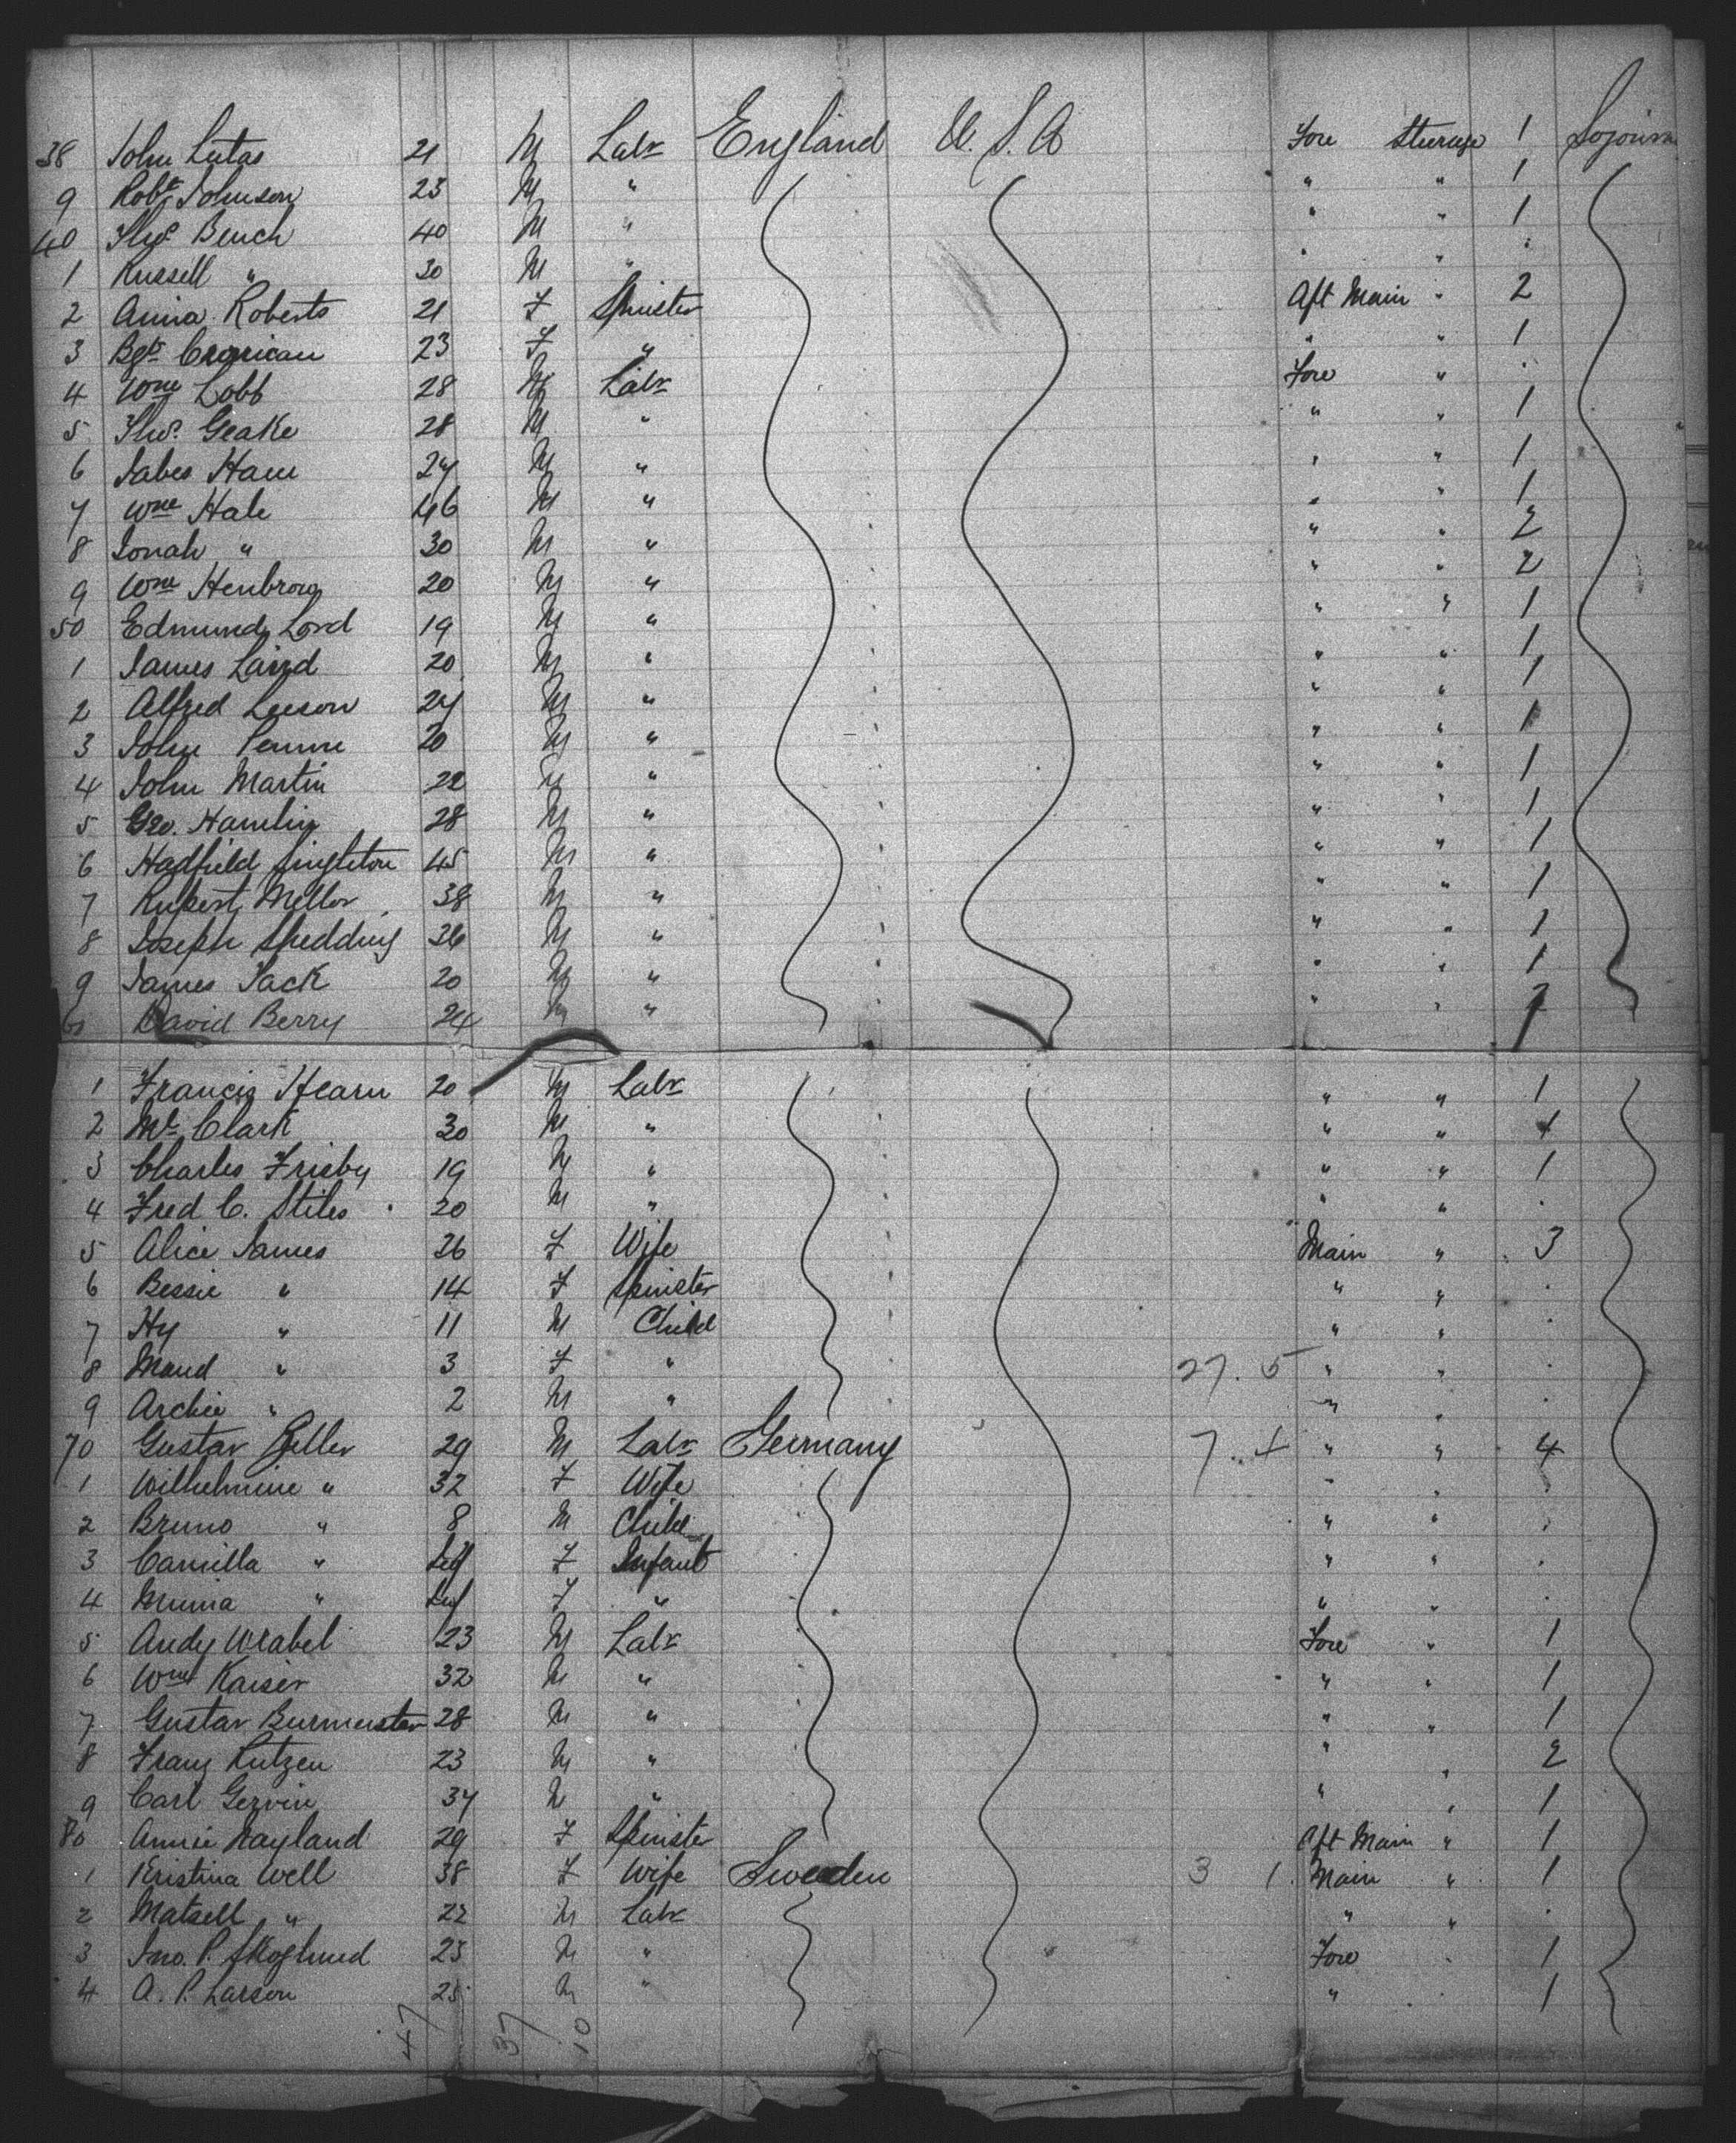 38 John Lutas 21 M Labr England U. S. A Fore Steerage 1 Sojourn
9 Robt Johnson 23 M " " " 1
40 Thos Bench 40 M " " " 1
1 Russell " 30 M " " " .
2 Anna Roberts 21 F Spinster Aft Main " 2
3 Bgt 23 F " " " 1
4 Wm Lobb 28 M Labr Fore " .
5 Thos. Geake 28 M " " " 1
6 Jabes Ham 27 M " " " 1
7 Wm Hale 46 M " " " 1
8 Jonah " 30 M " " " 2
9 Wm 20 M " " " 2
50 Edmund Lord 19 M " " " 1
1 James Laird 20 M " " " 1
2 Alfred Leeson 27 M " " " 1
3 John 20 M " " " 1
4 John Martin 22 M " " " 1
5 Geo. Hamlin 28 M " " " 1
6 Hadfield Singleton 45 M " " " 1
7 Rupert Mellor 38 M " " " 1
8 Joseph Spedding 36 M " " " 1
9 James Jack 20 M " " " 1
60 David Berry 24 M " " "
1 Francis Hearn 20 M Labr " " 1
2 Mr Clark 30 M " " "
3 Charles Frisby 19 M " " " 1
4 Fred C. Stiles 20 M " " " .
5 Alice James 26 F Wife Main " 3
6 Bessie " 14 F Spinster " " .
7 Hy " 11 M Child " " .
8 Maud " 3 F " 27. 5 " " .
9 Archie " 2 M " " " .
70 Gustav 29 M Labr Germany 7 . + " " 4
1 Wilhelmine " 32 F Wife " "
2 Bruno " 8 M Child " " .
3 Camilla " Inf F Infant " " .
4 Minna " Inf F " " " .
5 Andy Wrabel 23 M Labr Fore " 1
6 Wm Kaiser 32 M " " " 1
7 Gustav Burmeister 28 M " " " 1
8 Franz Lutzen 23 M " " " 2
9 Carl Gervin 37 M " " " 1
80 Annie Nayland 29 F Spinster Aft Main " 1
1 Kristina Well 38 F Wife Sweden 3 1 Main " 1
2 Matsell " 22 M Labr " " .
3 Jno. P. Skoglund 23 M " Fore . 1
4 A. P. Larson 25 M " " . 1
47 37 10